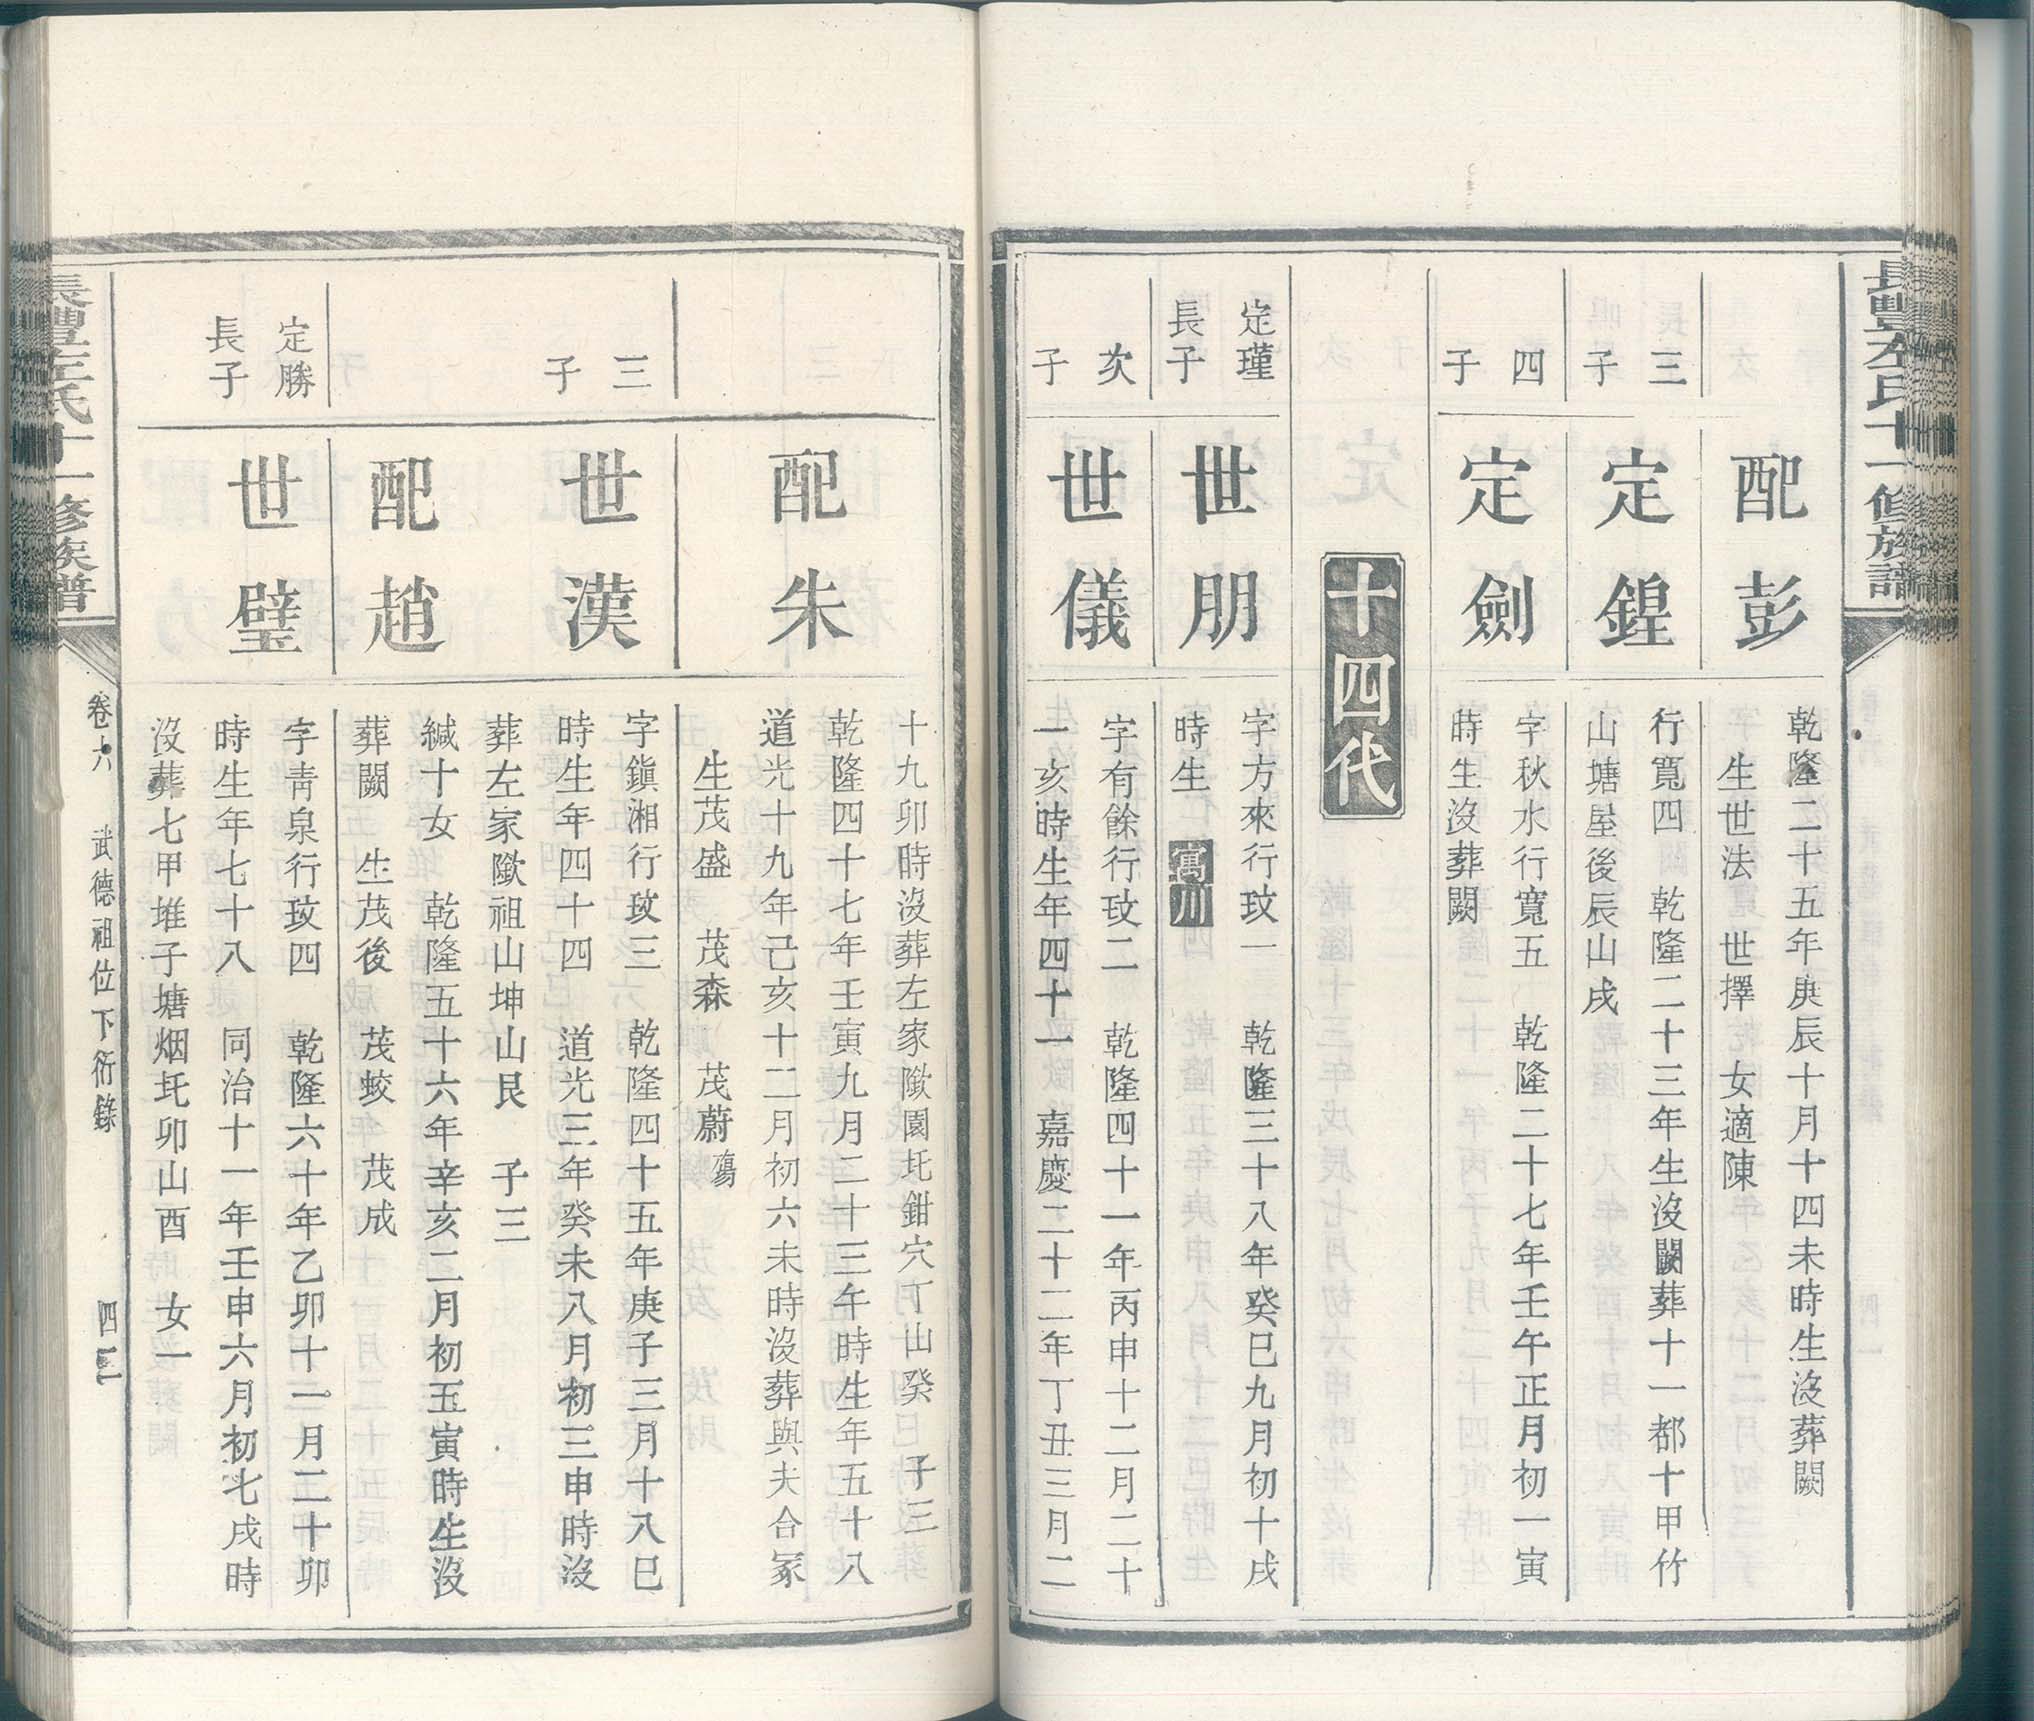 長豐左氏十一修族譜
配彭
乾隆二十五年庚辰十月十四未時生沒葬闕
生世法 世擇 女適陳
三子
定鍠
行寬四 乾隆二十三年生沒闕葬十一都十甲竹
山塘屋後辰山戌
四子
定劍
字秋水行寬五 乾隆二十七年壬午正月初一寅
時生沒葬闕
十四代
定瑾
長子
世朋
字方來行玟一 乾隆三十八年癸巳九月初十戌
時生 寓川
次子
世儀
字有餘行玟二 乾隆四十一年丙申十二月二十
一亥時生年四十一 嘉慶二十二年丁丑三月二
十九卯時沒葬左家歘園坉鉗穴丁山癸 子三
配朱
乾隆四十七年壬寅九月二十三午時生年五十八
道光十九年己亥十二月初六未時沒葬與夫合冢
生茂盛 茂森 茂蔚殤
三子
世漢
字鎮湘行玟三 乾隆四十五年庚子三月十八巳
時生年四十四 道光三年癸未八月初三申時沒
葬左家歘祖山坤山艮 子三
配趙
緘十女 乾隆五十六年辛亥二月初五寅時生沒
葬闕 生茂後 茂蛟 茂成
定勝
長子
世璧
字靑泉行玟四 乾隆六十年乙卯十一月二十卯
時生年七十八 同治十一年壬申六月初七戌時
沒葬七甲堆子塘烟坉卯山酉 女一
長豐左氏十一修族譜
卷六 武德祖位下衍錄 四二